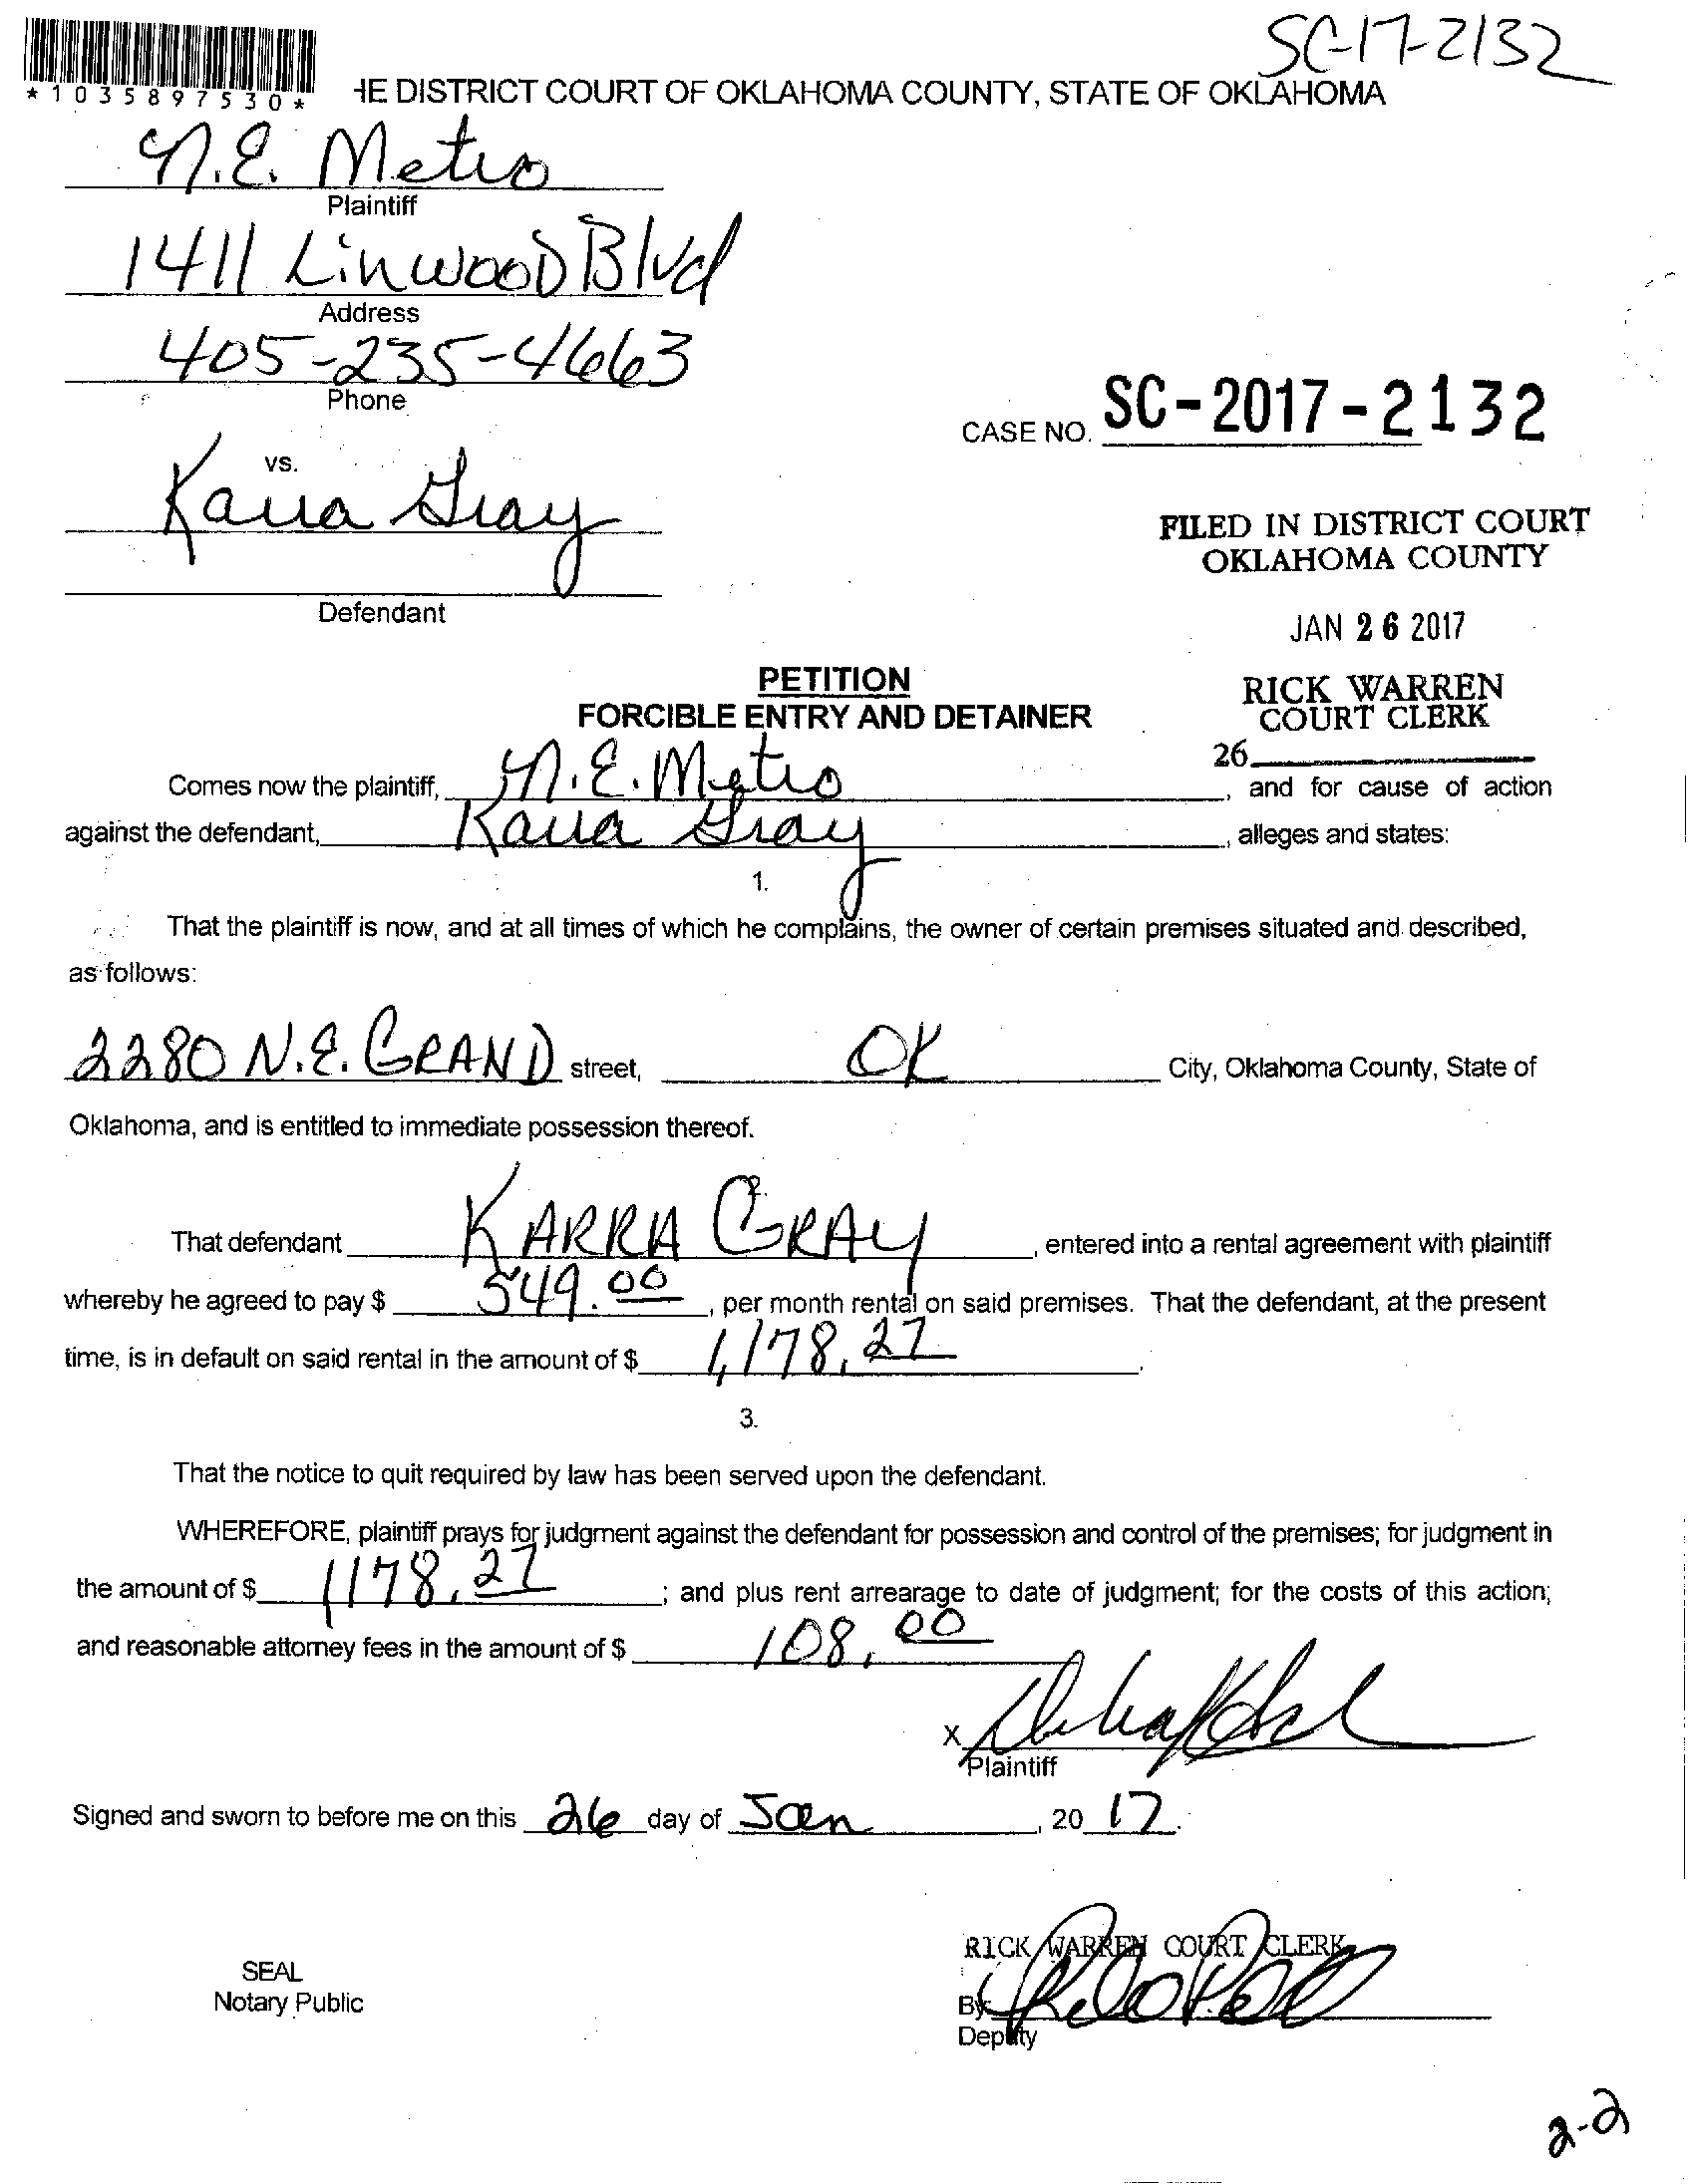 SC-17-2132
*1035897530*
HE DISTRICT COURT OF OKLAHOMA COUNTY, STATE OF OKLAHOMA
N.E. Metro
Plaintiff
1411 Linwood Blvd
Address
405-235-4663
Phone
CASE NO. SC-2017-2132
vs.
Karra Gray
Defendant
FILED IN DISTRICT COURT
OKLAHOMA COUNTY
JAN 26 2017
RICK WARREN
COURT CLERK
26
PETITION
FORCIBLE ENTRY AND DETAINER
Comes now the plaintiff, N.E. Metro, and for cause of action
against the defendant, Karra Gray, alleges and states:
1.
That the plaintiff is now, and at all times of which he complains, the owner of certain premises situated and described,
as follows:
2280 N.E. GRAND street, OK City, Oklahoma County, State of
Oklahoma, and is entitled to immediate possession thereof.
2.
That defendant KARRA GRAY, entered into a rental agreement with plaintiff
whereby he agreed to pay $ 549.00, per month rental on said premises. That the defendant, at the present
time, is in default on said rental in the amount of $ 1,178.27.
3.
That the notice to quit required by law has been served upon the defendant.
WHEREFORE, plaintiff prays for judgment against the defendant for possession and control of the premises; for judgment in
the amount of $ 1178.27; and plus rent arrearage to date of judgment; for the costs of this action;
and reasonable attorney fees in the amount of $ 108.00
X
Plaintiff
Signed and sworn to before me on this 26 day of Jan, 20 17.
RICK WARREN COURT CLERK
SEAL
Notary Public
By:
Deputy
2-2